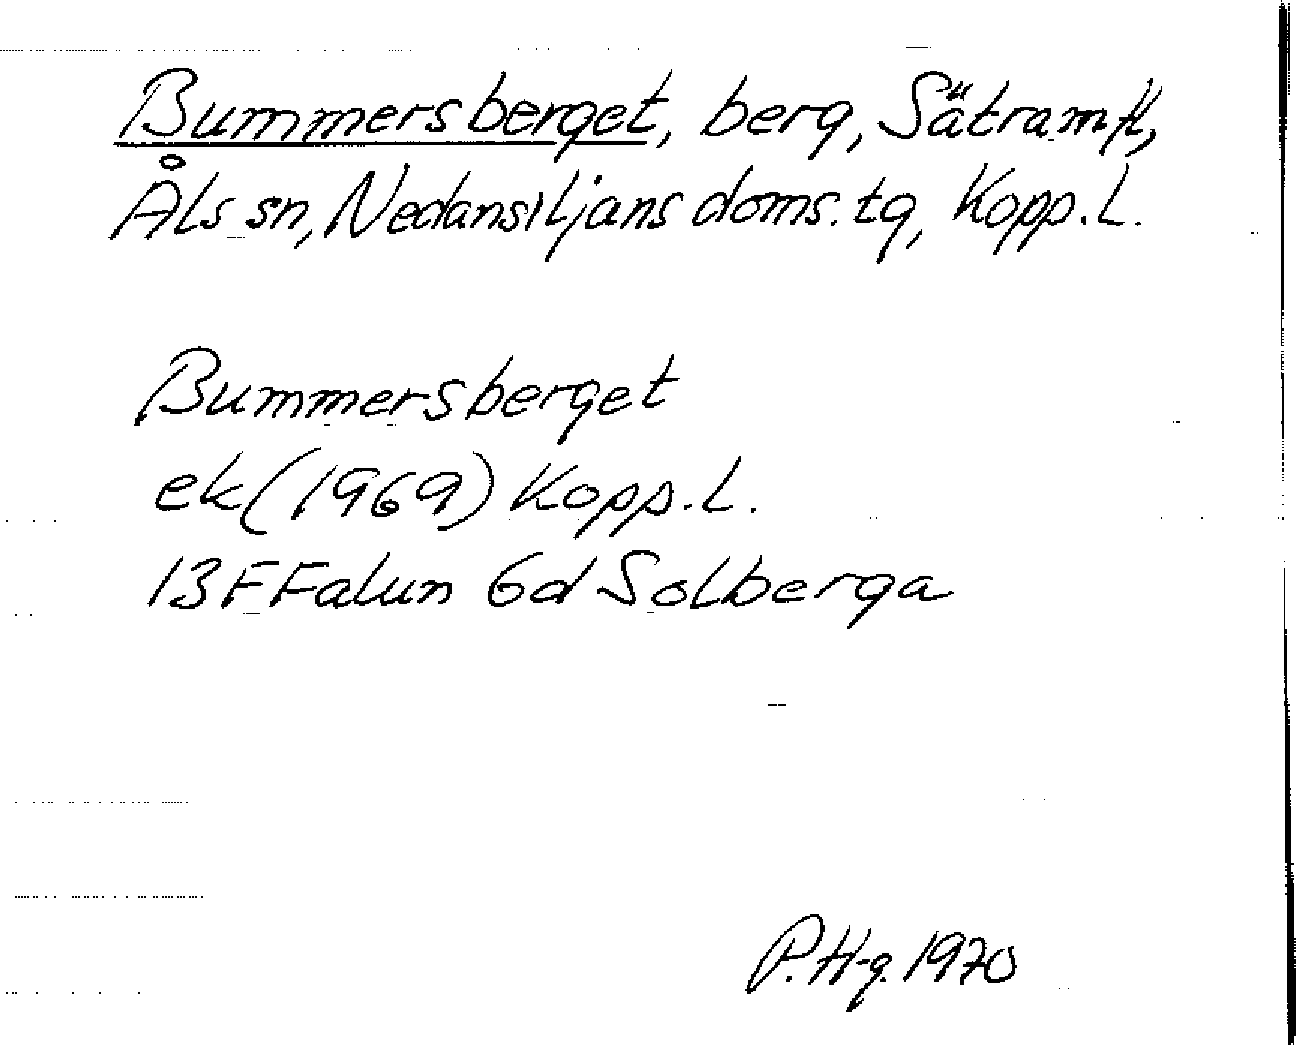 Bummersberget, berg, Sätra m fl,
Åls sn, Nedansiljans doms. tg, Kopp. L.
Bummersberget
ek (1969) Kopp. L.
13F Falun 6d Solberga
P. H-g. 1970